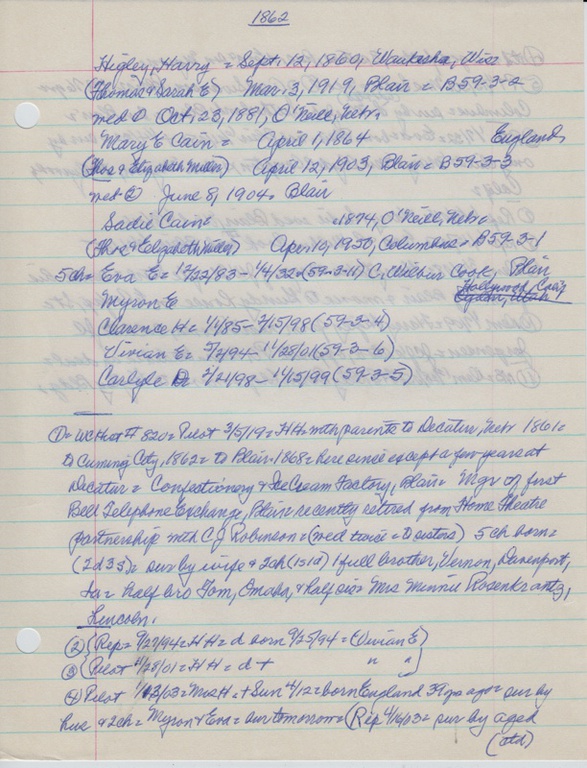 1862
Higley, Harry = Sept. 12, 1860, Waukesha, Wisc
(Thomas & Sarah E) Mar. 3, 1919, Blair = B59-3-2
med ① Oct. 23, 1881, O'Neill, Nebr.
Mary E Cain = April 1, 1864 England
(Thos & Elizabeth Miller) April 12, 1903, Blair = B59-3-3
med ② June 8, 1904, Blair
Sadie Cain = 1874, O'Neill, Nebr.
(Thos & Elizabeth Miller) Apr. 10, 1950, Columbus = B59-3-1
5ch = Eva E = 12/22/83 - 1/4/32 (59-3-11) C, Wilbur Cook, Blair
Myron E Hollywood, Calif
Ogden, Utah
Clarence H = 1/1/85 - 2/15/98 (59-3-4)
Vivian E = 5/2/94 - 11/28/01 (59-3-6)
Carlyle D 2/21/98 - 11/15/99 (59-3-5)
① = WC Hist II 820 = Pilot 3/5/19 = HH = with parents to Decatur, Nebr 1861 =
to Cuming City, 1862 = to Blair 1868 = here since except a few years at
Decatur = Confectionery & Ice Cream Factory, Blair = Mgr of first
Bell Telephone Exchange, Blair = recently retired from Home Theatre
partnership with CJ Robinson = (med twice = to sisters) 5 ch born =
(2d 3s) = sur by wife & 2ch (1s1d) 1 full brother, Vernon, Davenport,
Ia = half bro Tom, Omaha, & half sis = Mrs Minnie Rosenkrantz,
Lincoln.
② (Rep = 9/29/94 = HH = d born 9/25/94 = (Vivian E)
③ (Pilot 11/28/01 = HH = d + " " )
④ Pilot = Mrs H = + Sun 4/12 = born England 39 yrs ago = sur by
hus & 2ch = Myron & Eva = bur tomorrow = (Rep 4/16/03 = sur by aged
(ctd)